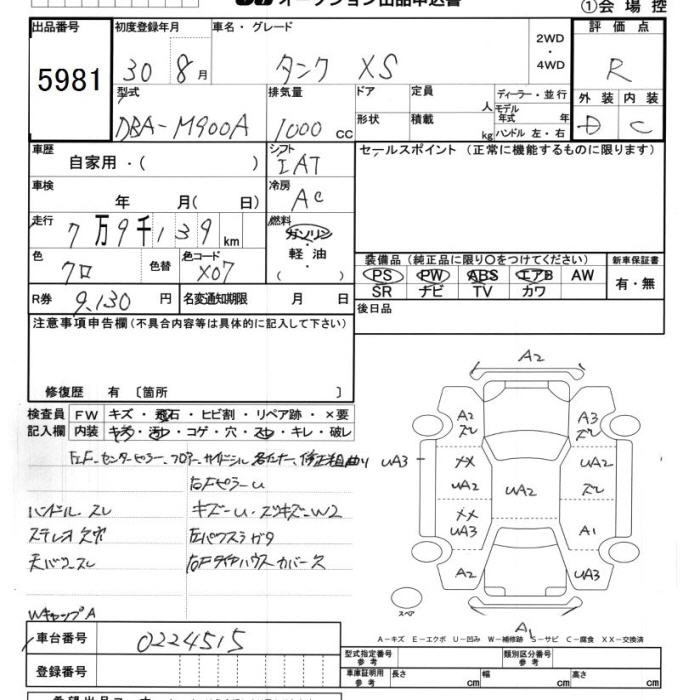 オークション出品申込書
①会場控
出品番号 初度登録年月 車名・グレード 評価点
5981 30 8月 タンク XS 2WD・4WD R
型式 排気量 ドア 定員 人 ディーラー・並行 外装 内装
DBA-M900A 1000 cc 形状 積載 kg モデル年式 年 ハンドル 左・右 D C
車歴 シフト セールスポイント (正常に機能するものに限ります)
自家用・( ) IAT
車検 年 月( 日) 冷房 AC
走行 7万9千139km 燃料 ガソリン・軽油・( )
色 クロ 色替 色コード X07
装備品 (純正品に限り〇をつけてください) 新車保証書
PS PW ABS エアB AW 有・無
SR ナビ TV カワ
R券 9,130円 名変通知期限 月 日
後日品
注意事項申告欄(不具合内容等は具体的に記入して下さい)
修復歴 有 〔箇所 〕
検査員 FW キズ・飛石・ヒビ割・リペア跡・×要
記入欄 内装 キズ・汚れ・コゲ・穴・スレ・キレ・破レ
右Fピラーu
ハンドル スレ キズーu・スリキズーW2
ステレオ欠
WキャンプA
A2
A2 A3
ズレ ズレ
UA3 メメ UA2
UA2 UA2 ズレ
メメ A1
UA3
A2 UA3
スペア
A1
A-キズ E-エクボ U-凹み W-補修跡 S-サビ C-腐食 XX-交換済
車台番号 0224515
型式指定番号 参考 類別区分番号 参考
登録番号
車庫証明用 参考 長さ cm 幅 cm 高さ cm